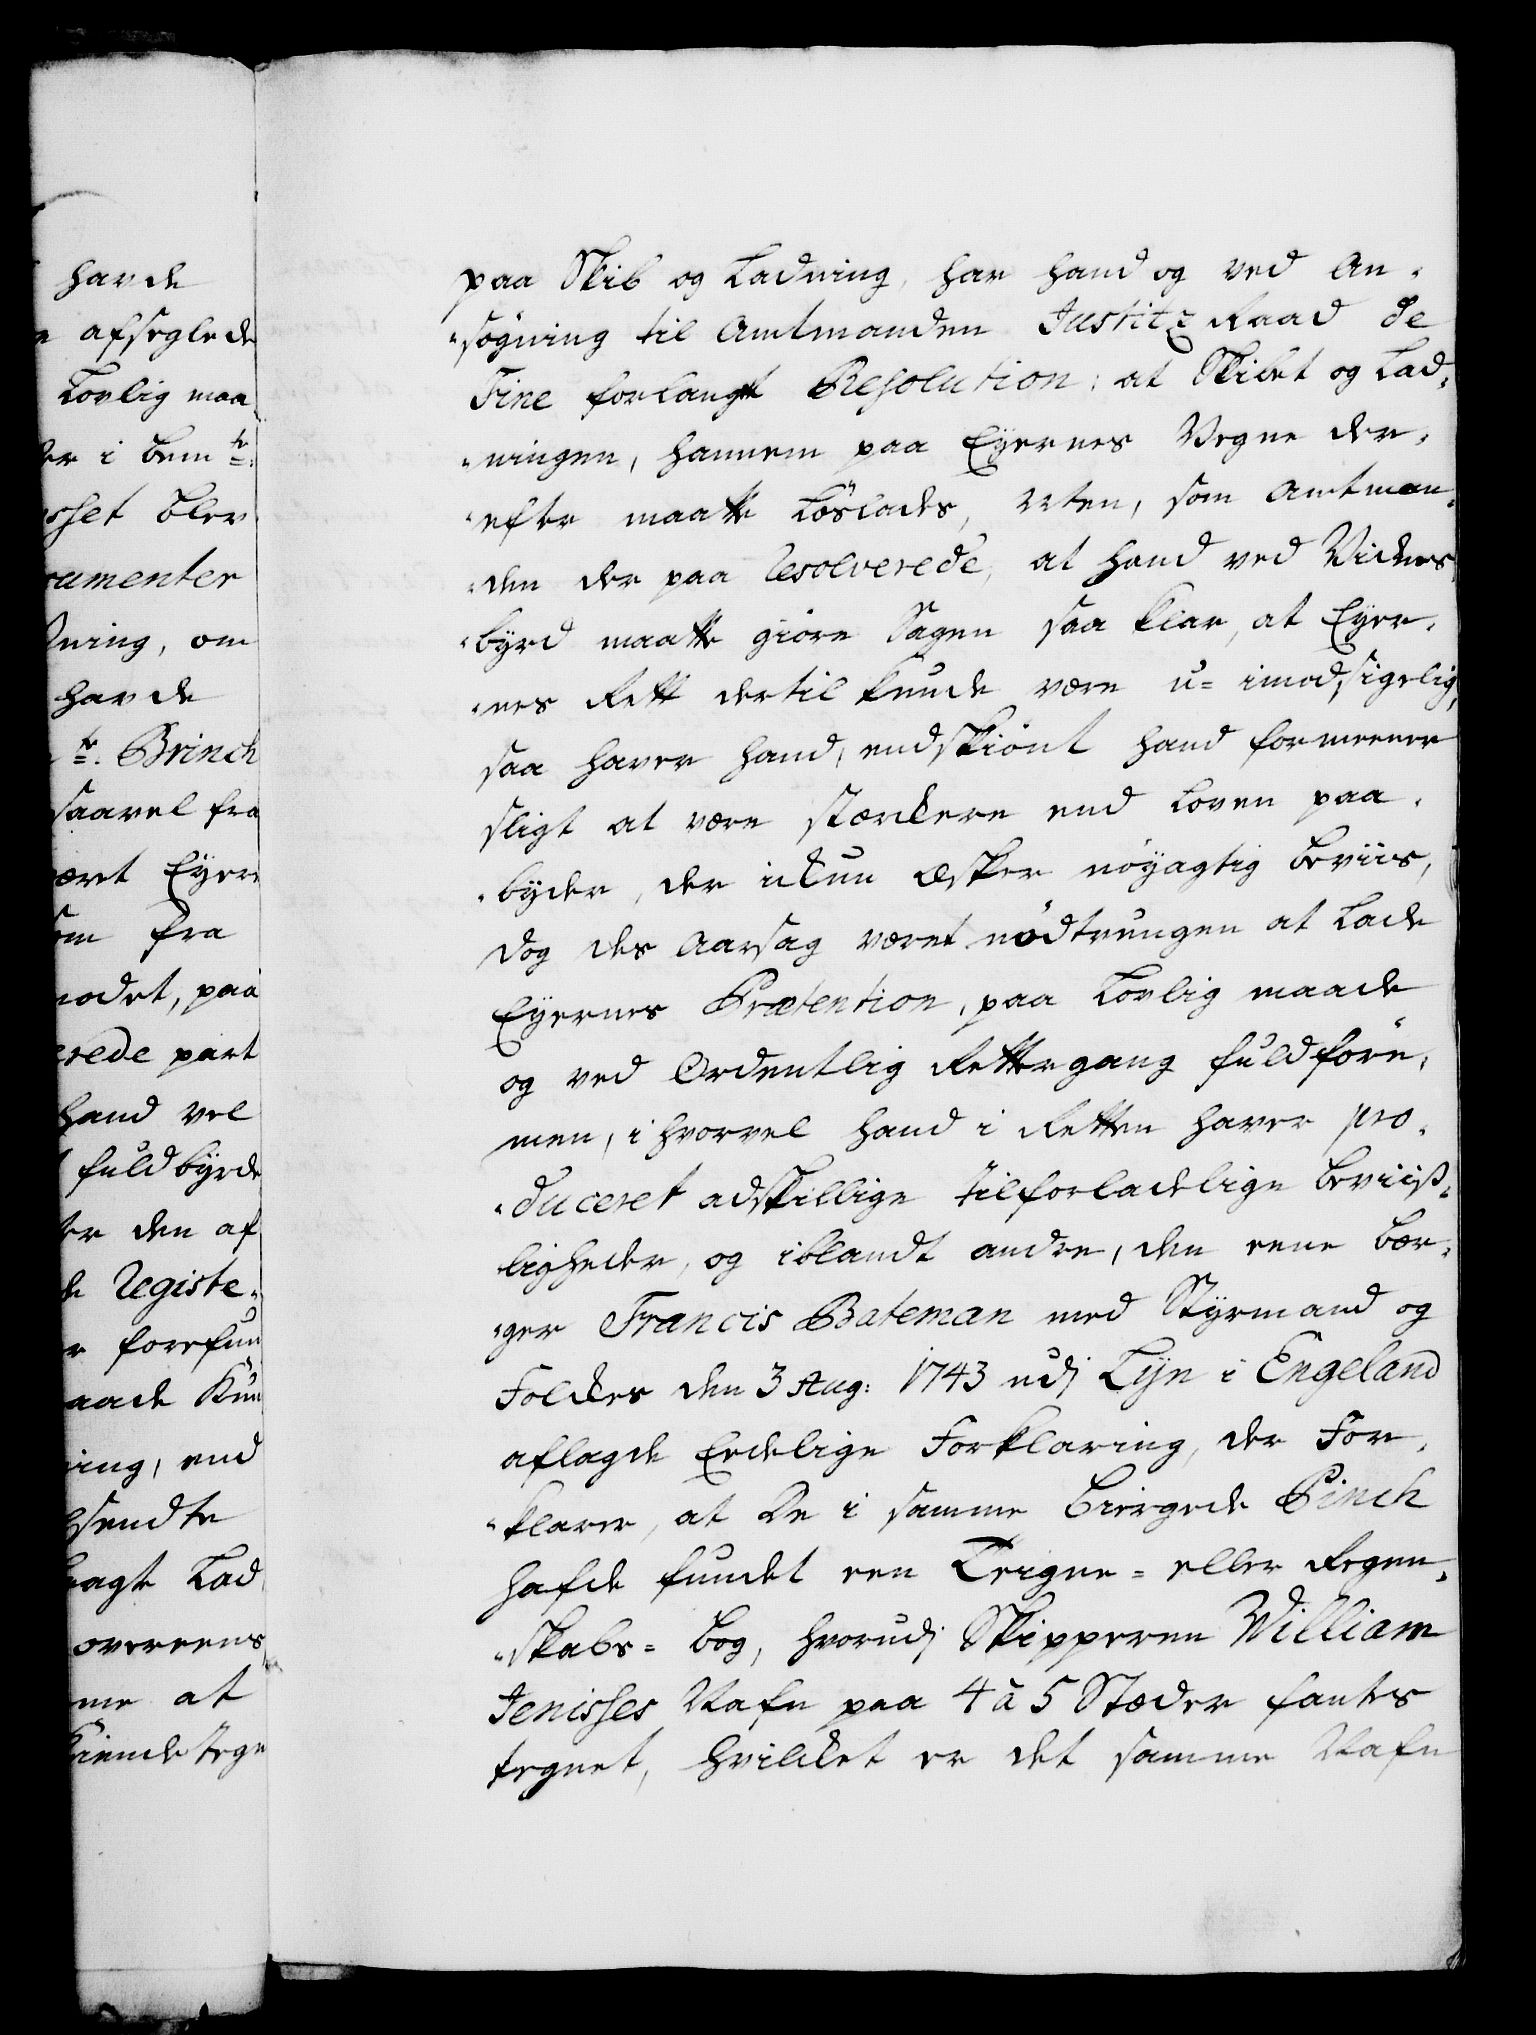 havde
afseglede
Lovlig maa
i bemte
sset blev
cumenter
ning, om
havde
te. Brinch
saavel fra
været Eyere
som fra
modet, paa
erede part
hand vel
fuldbyrde
ter den af
de Registe-
forefun
maade Kun
ning, end
sendte
bragte Lad
overeens
me at
Kiendetegn
paa Skib og Ladning, har hand og ved An-
søgning til Amtmanden Justitz Raad de
Fine forlangt Resolution: at Skibet og Lad-
ningen, hannem paa Eyernes Vegne der-
efter maatte Løslades, Men, som Amtman-
den der paa Resolverede, at hand ved Vidnes
byrd maatte giøre Sagen saa klar, at Eyer-
nes Rett dertil kunde være u-imodsigelig,
saa haver hand, endskiønt hand formeener
sligt at være stærckere end Loven paa-
byder, der ickun æsker nøyagtig Beviis,
dog des Aarsag været nødtrungen at Lade
Eyernes Prætention, paa Lovlig maade
og ved Ordentlig Rettergang fuldføre,
men, i hvorvel hand i Retten haver pro-
duceret adskillige tilforladelige Beviiss-
ligheder, og iblandt andre, den eene Bær-
ger Francis Bateman med Styrmand og
Folckes den 3 Aug: 1743 udj Lyn i Engeland
aflagde Eedelige Forklaring, der For-
klarer, at De i samme biergede Pinch
hafde fundet een Teigne- eller Regen-
skabs-bog, hvorudj Skipperen William
Jenisses Nafn paa 4 à 5 Stæder fantes
tegnet, hvilcket er det samme Nafn